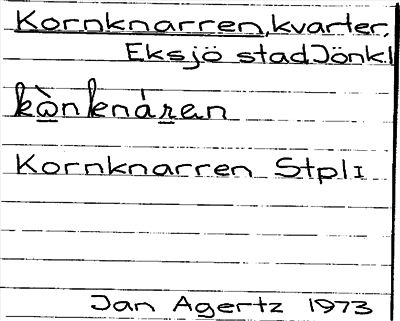 Kornknarren, kvarter,
Eksjö stad Jönk.l
kὼnknáren
Kornknarren Stpl I
Jan Agertz 1973